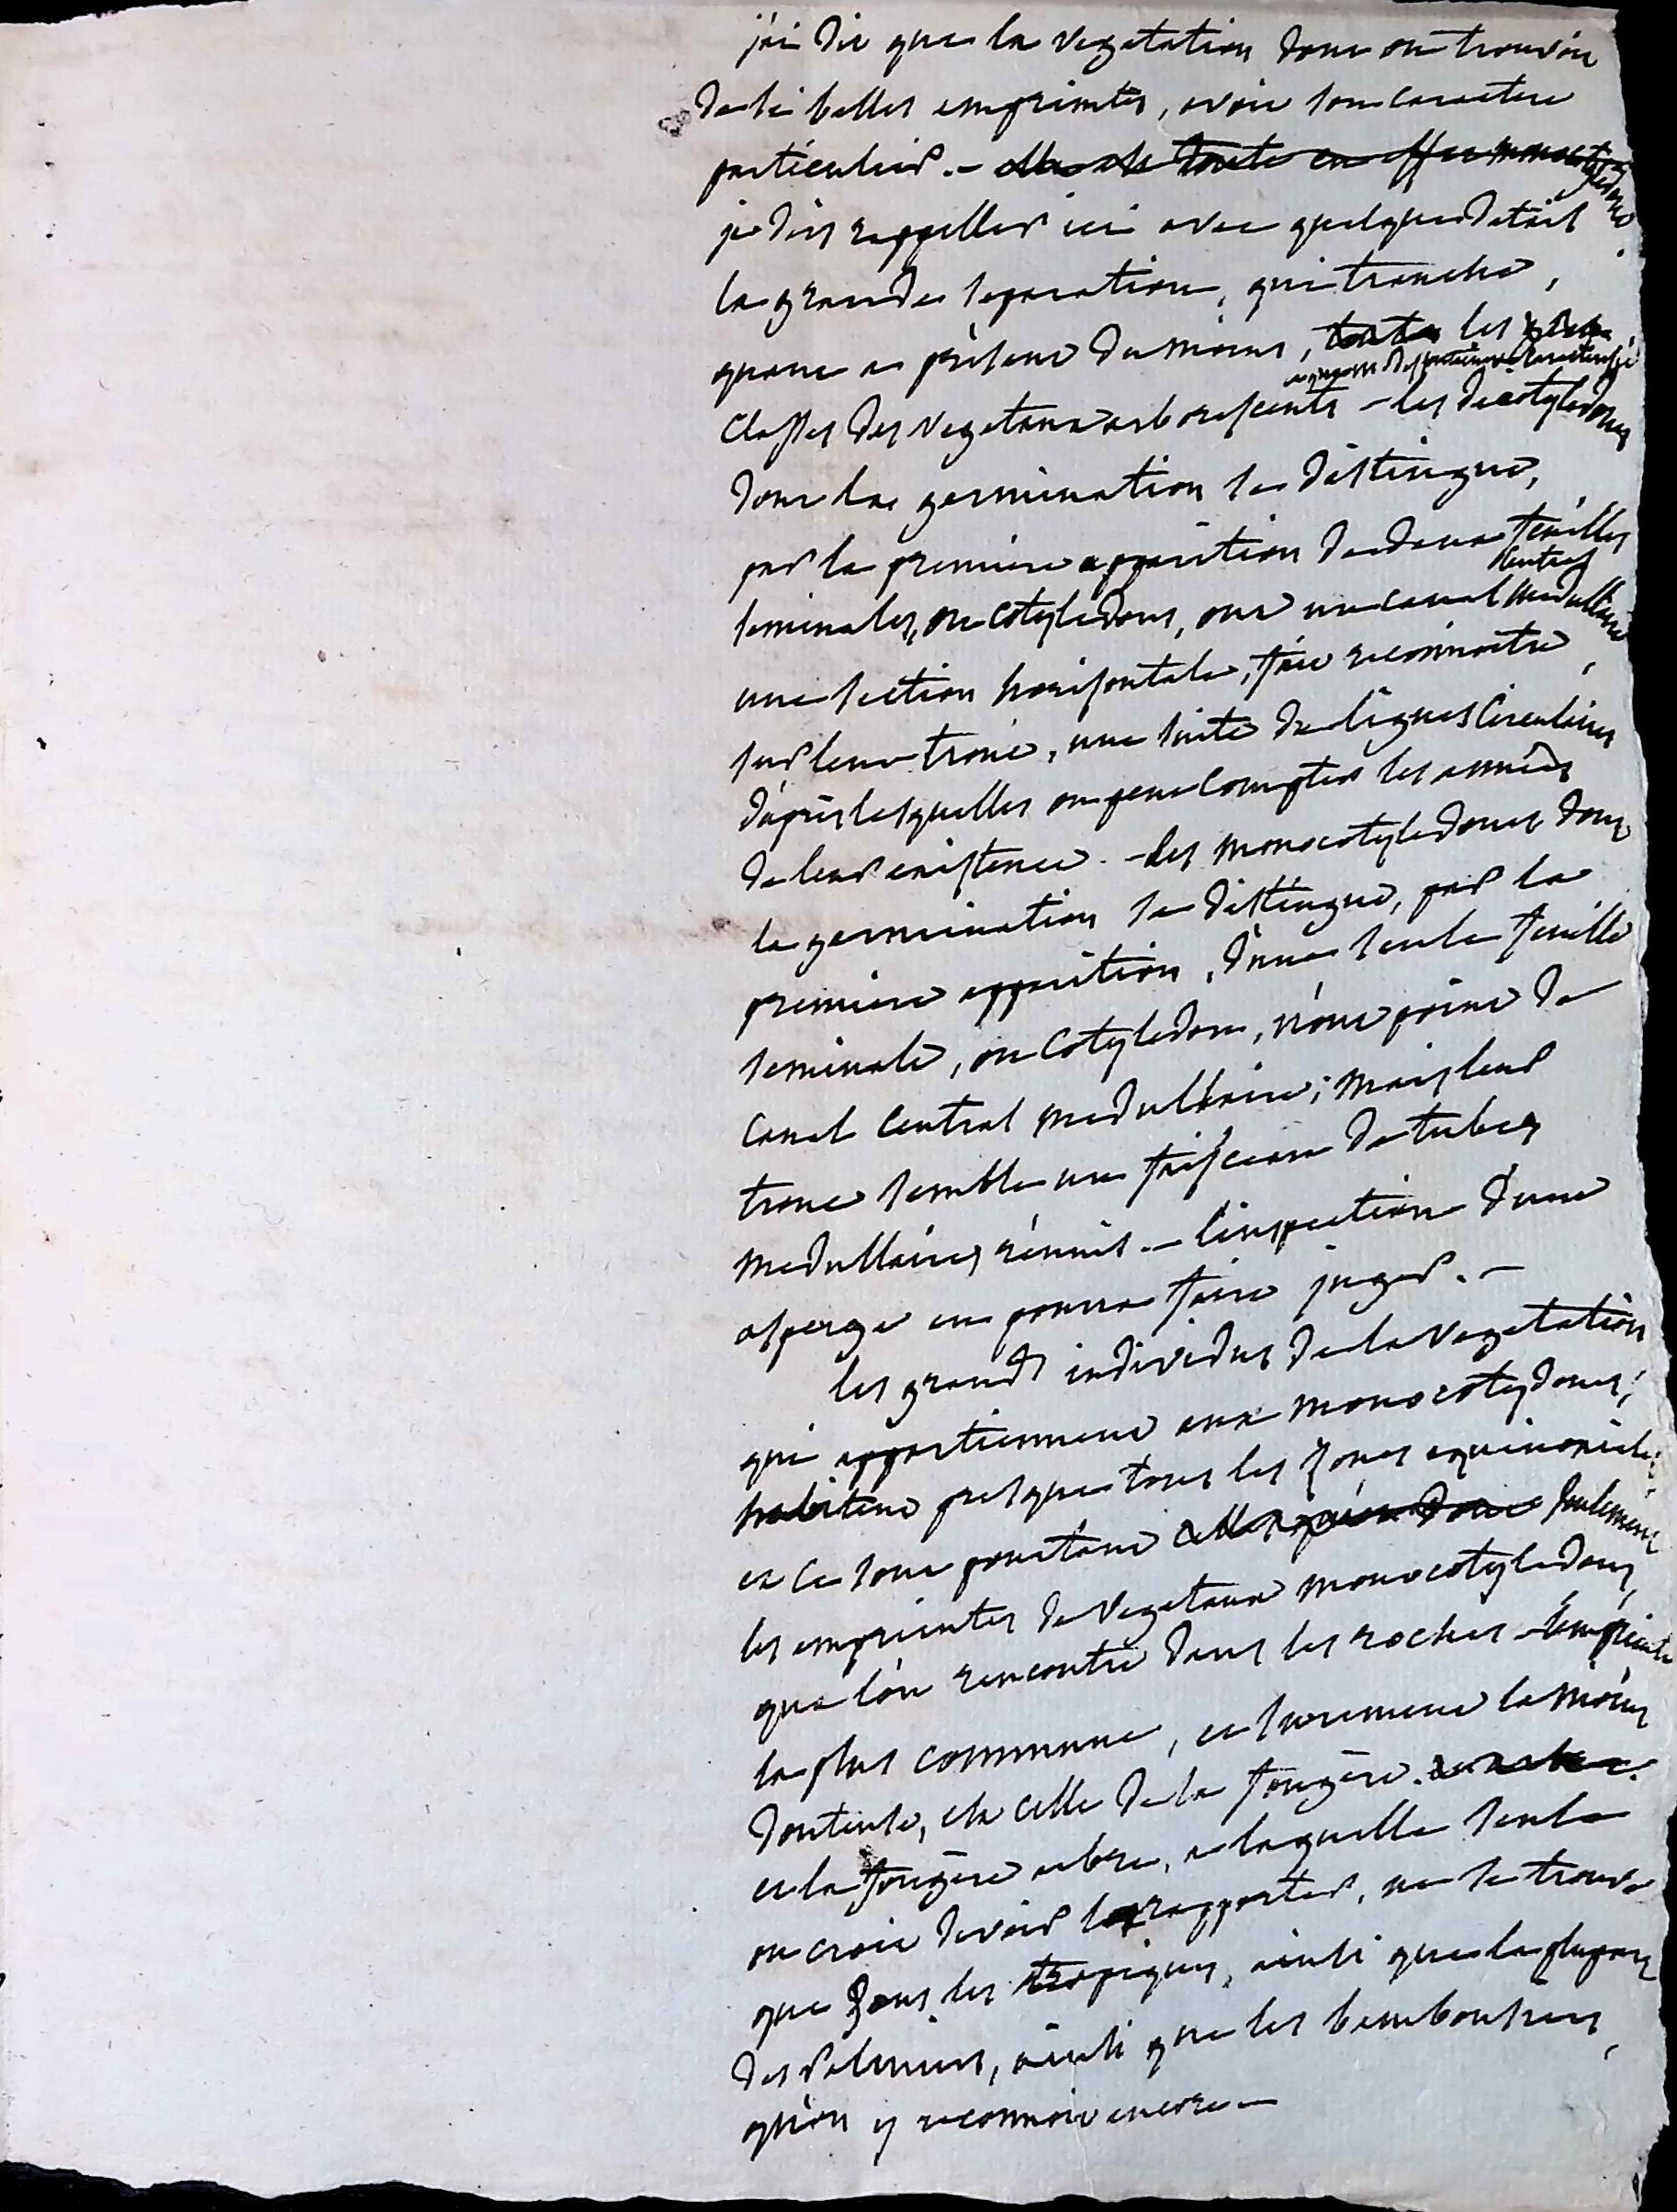 j'ai dit que la vegetation dont on trouvoit
de si belles empreintes, avoit son caractere
particulier. - elle est toute en effet monocotyledone
je dois rappeller ici avec quelque detail
la grande separation, qui tranche,
quant a présent du moins, toute les
classes des vegetaux arborescents - les dicotyledones
dont la germination se distingue,
par la premiere apparition de deux feuilles
seminales, ou cotyledons, ont un canal medullaire
central
une section horisontale, fait reconnoitre
sur leur tronc, une suite de lignes circulaires
d'après lesquelles on peut compter les années
de leur existence. - les monocotyledones dont
la germination se distingue, par la
premiere apparition, d'une seule feuille
seminale, ou cotyledon, n'ont point de
canal central medullaire; mais leur
tronc semble un faisceau de tubes
medullaires réunis. - l'inspection d'une
asperge en pourra faire juger. -
les grands individus de la vegetation
qui appartiennent aux monocotydones,
habitent presque tous les zones equinoxiales
et ce sont pourtant seulement
les empreintes de vegetaux monocotyledons,
que l'on rencontre dans les roches - l'empreinte
la plus commune, et surement la moins
douteuse, est celle de la fougère.
et la fougère arbre, a laquelle seule
on croit devoir la rapporter, ne se trouve
que sous les tropiques, ainsi que la plupart
des palmiers, ainsi que les bambousiers,
qu'on y reconnoit encore -